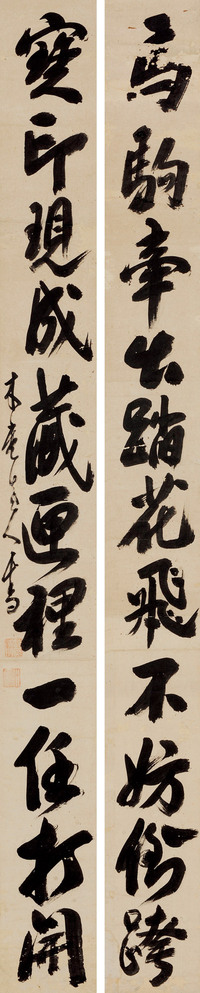 馬駒牽出踏花飛不妨倒跨
寶印現成藏匣裡一任打開
木菴山人書